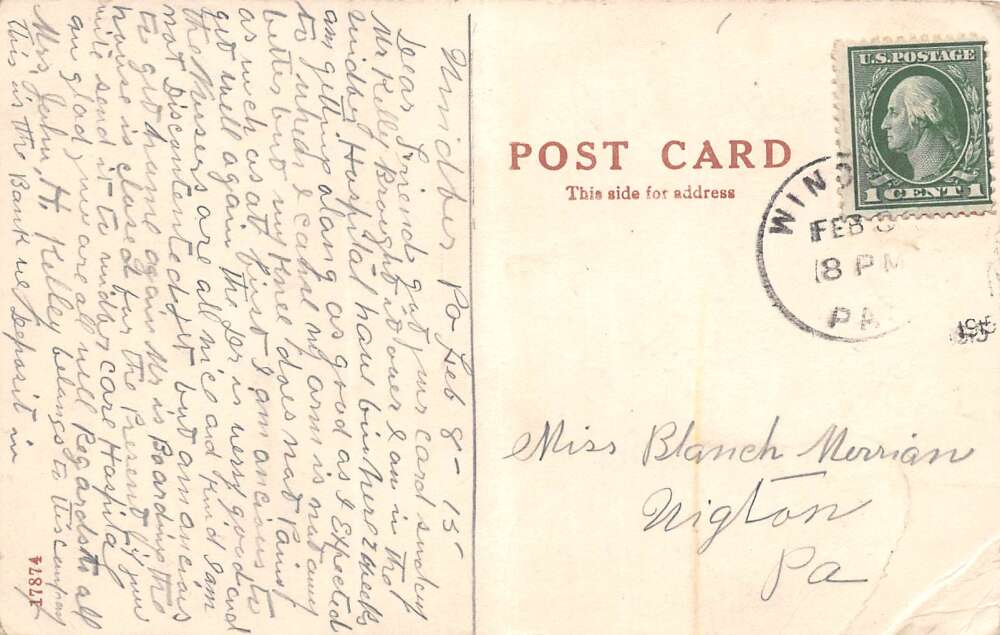 Windber Pa Feb 8 - 15
Dear Friend got your card sunday
Mr Kelly Brought it over I am in the
windber Hospital have bin here 2 weeks
am getting along as good as I Expected
to judeds I canel my arm is not any
better but my Knee does not Paing
as much as at first I am ancious to
get well again the Dr is verry good and
the Nurses are all nice and Kind I am
not Discontented yet but am ancious
to get home again Mr is Boarding the
house is closed for the Present if you
will send it to windber care Hospital
am glad you are all well Regards to all
Mrs John, H. Kelley belongs to this company
this is the Bank we Deposit in
17874
POST CARD
This side for address
U.S. POSTAGE
1 CENT 1
WIND
FEB 8
8 PM
PA
1915
Miss Blanch Merrian
Wigton
Pa